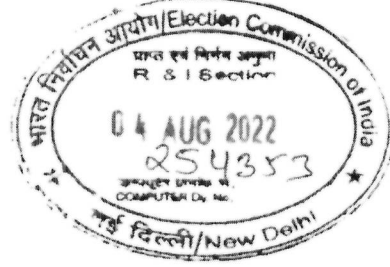 भारत निर्वाचन आयोग/Election Commission of India
प्राप्त एवं निर्गम अनुभाग
R & I Section
04 AUG 2022
254353
COMPUTER Dy. No.
नई दिल्ली/New Delhi